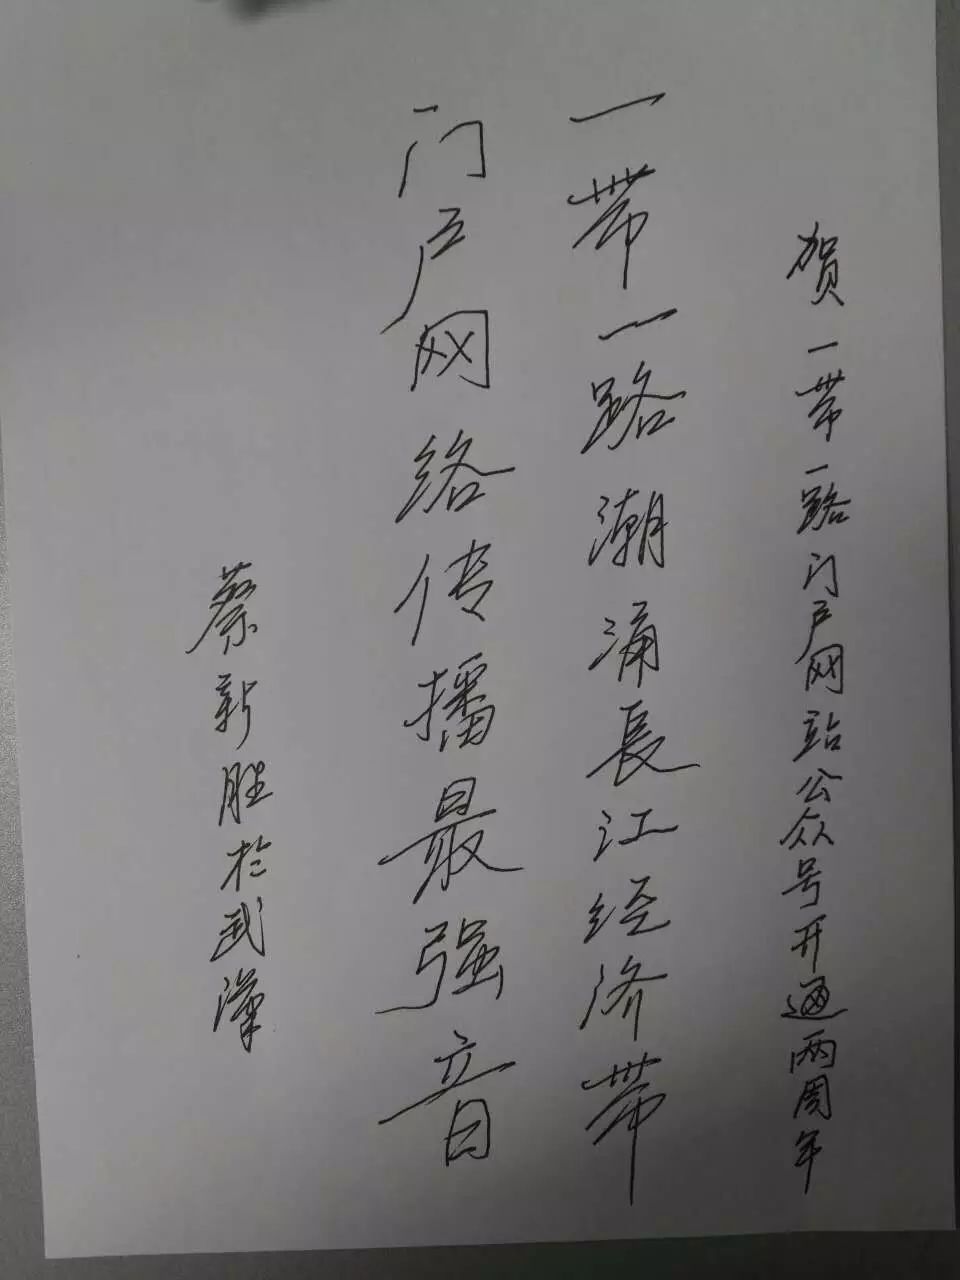 贺一带一路门户网站公众号开通两周年
一带一路潮涌長江经济带
门户网络传播最强音
蔡新胜於武漢